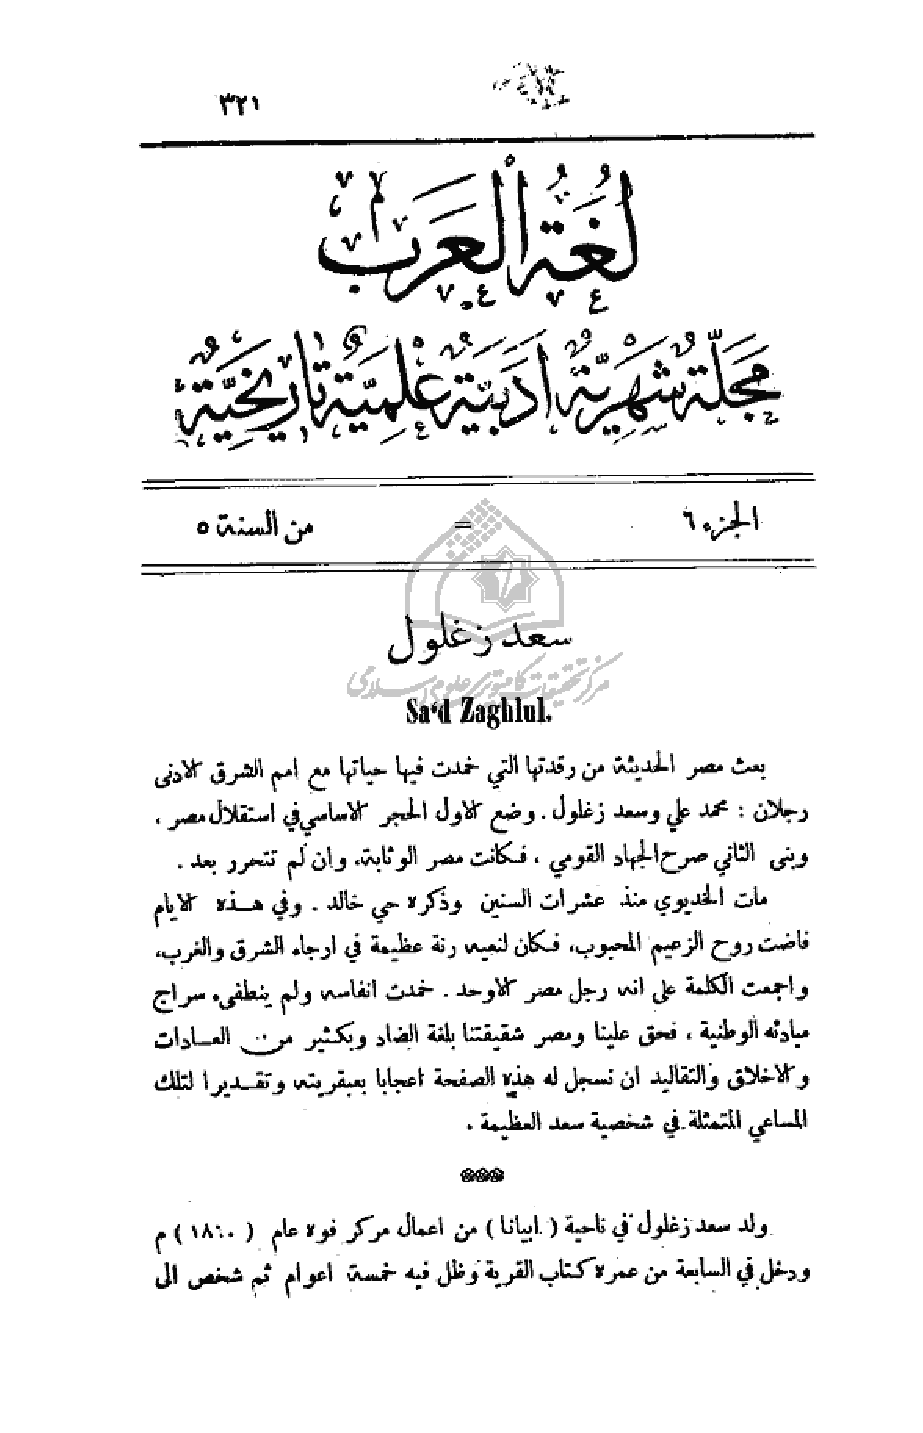 ٣٢١
لُغَةُ الْعَرَب
مَجَلَّة شَهْرِيَّةٌ أَدَبِيَّةٌ عِلْمِيَّةٌ تَارِيخِيَّةٌ
الجزء ٦ = من السنة ٥
سعد زغلول
مركز تحقيقات كامپيوتري علوم اسلامي
Sa'd Zaghlul.
بعث مصر الحديثة من رقدتها التي خمدت فيها حياتها مع امم الشرق الادنى
رجلان : محمد علي وسعد زغلول . وضع الاول الحجر الاساسي في استقلال مصر ،
وبنى الثاني صرح الجهاد القومي ، فكانت مصر الوثابة، وان لم تتحرر بعد .
مات الخديوي منذ عشرات السنين وذكره حي خالد . وفي هــذه الايام
فاضت روح الزعيم المحبوب، فكان لنعيه رنة عظيمة في ارجاء الشرق والغرب،
واجمعت الكلمة على انه رجل مصر الاوحد . خمدت انفاسه ولم ينطفىء سراج
مبادئه الوطنية ، فحق علينا ومصر شقيقتنا بلغة الضاد وبكثير من العــادات
والاخلاق والتقاليد ان نسجل له هذه الصفحة اعجابا بعبقريته وتقــديرا لتلك
المساعي المتمثلة في شخصية سعد العظيمة .
ولد سعد زغلول في ناحية ( ابيانا ) من اعمال مركز فوه عام ( ١٨٦٠ ) م
ودخل في السابعة من عمره كتاب القرية وظل فيه خمسة اعوام ثم شخص الى